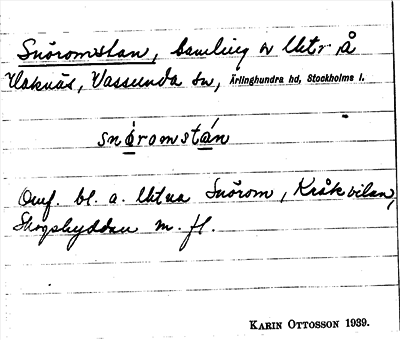 Snöromstan, samling av lktr å
Vaknäs, Vassunda sn, Ärlinghundra hd, Stockholms l.
snö̀romstán
Omf. bl. a. lktna Snörom, Kråkvilan,
Skogshyddan m. fl.
KARIN OTTOSSON 1939.